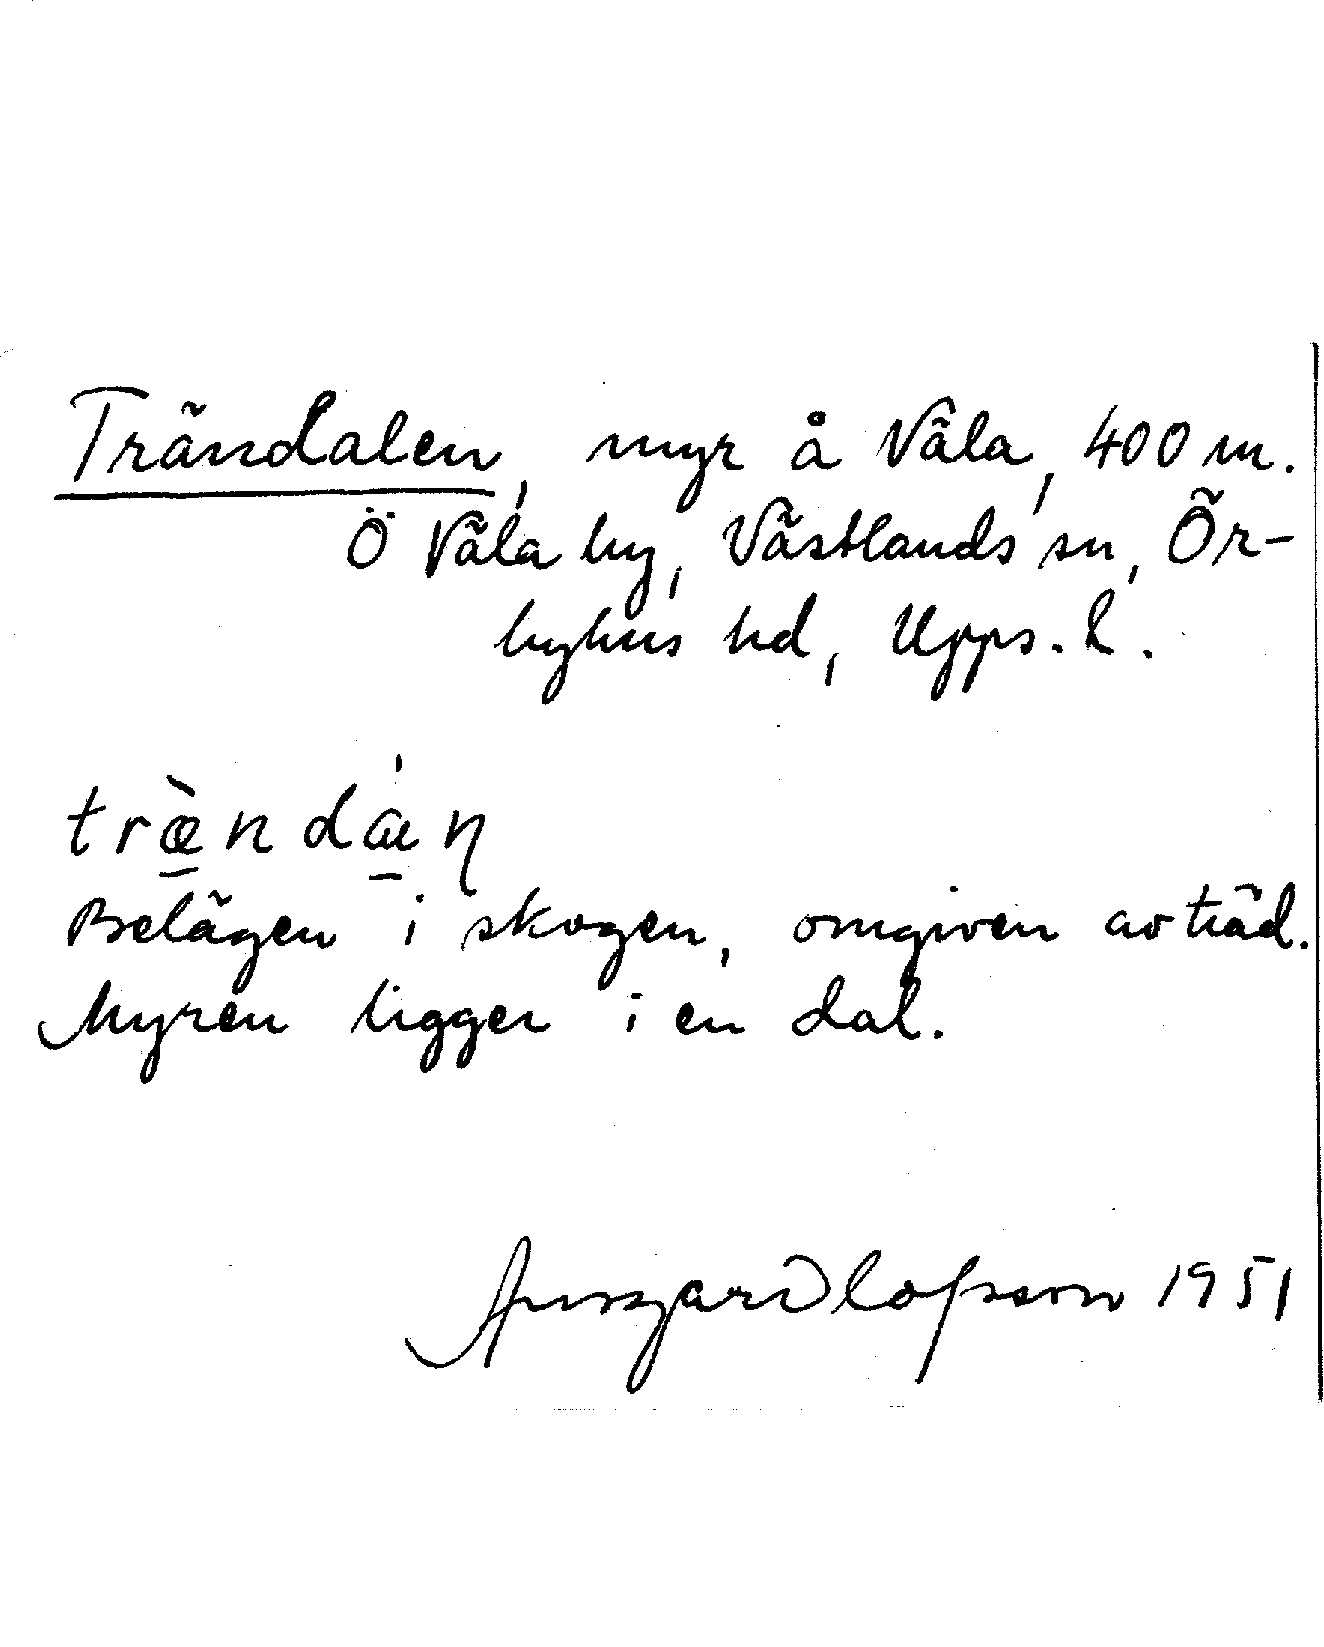 Trändalen, myr å Väla, 400 m.
Ö Väla by, Västlands sn, Ör-
byhus hd, Upps. l.
træ̀ndán
Belägen i skogen, omgiven av träd.
Myren ligger i en dal.
Ansgar Olofsson 1951